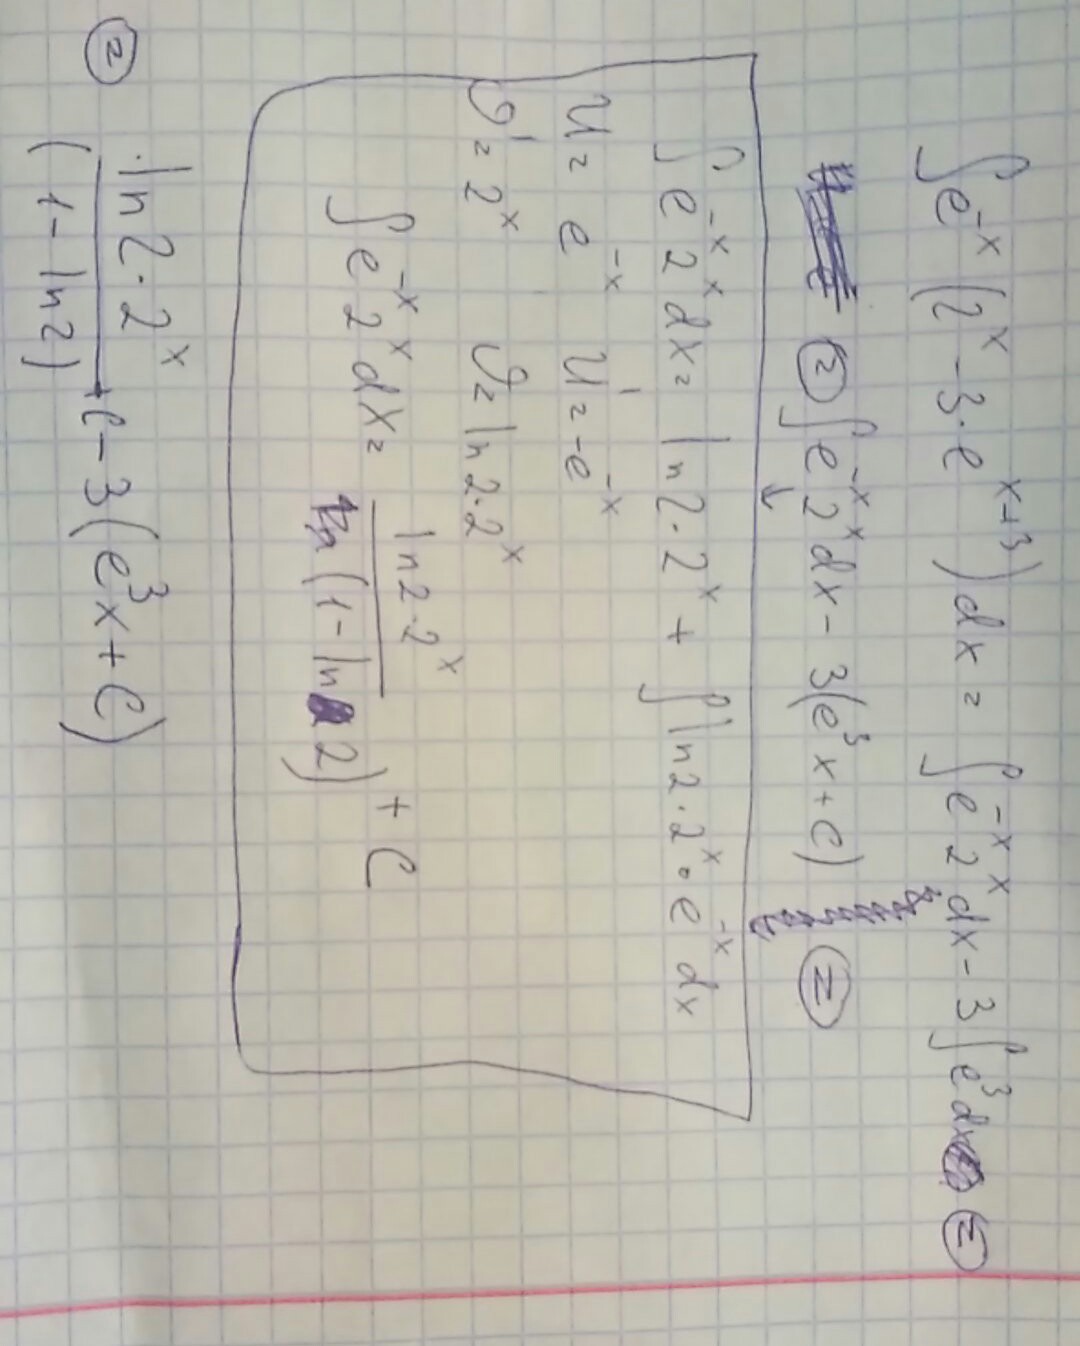 ∫e^-x (2^x - 3·e^x+3) dx = ∫e^-x 2^x dx - 3∫e^3 dx ⊜
⊜ ∫e^-x 2^x dx - 3(e^3 x + C) ⊜
∫e^-x 2^x dx = ln2·2^x + ∫ln2·2^x·e^-x dx
U = e^-x U' = -e^-x
V' = 2^x V = ln2·2^x
∫e^-x 2^x dx = ln2·2^x / (1 - ln 2) + C
⊜ ln2·2^x / (1 - ln2) + C - 3(e^3 x + C)